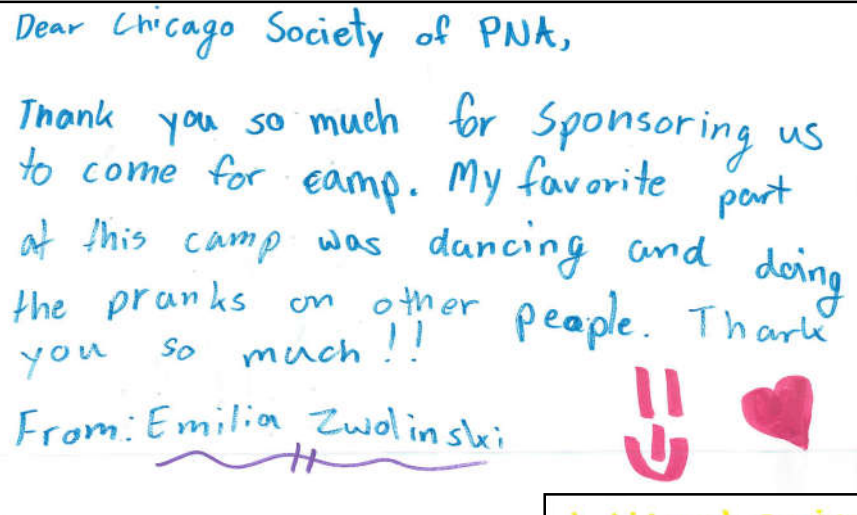 Dear Chicago Society of PNA,
Thank you so much for sponsoring us
to come for camp. My favorite part
at this camp was dancing and doing
the pranks on other people. Thank
you so much!!
From: Emilia Zwolinski